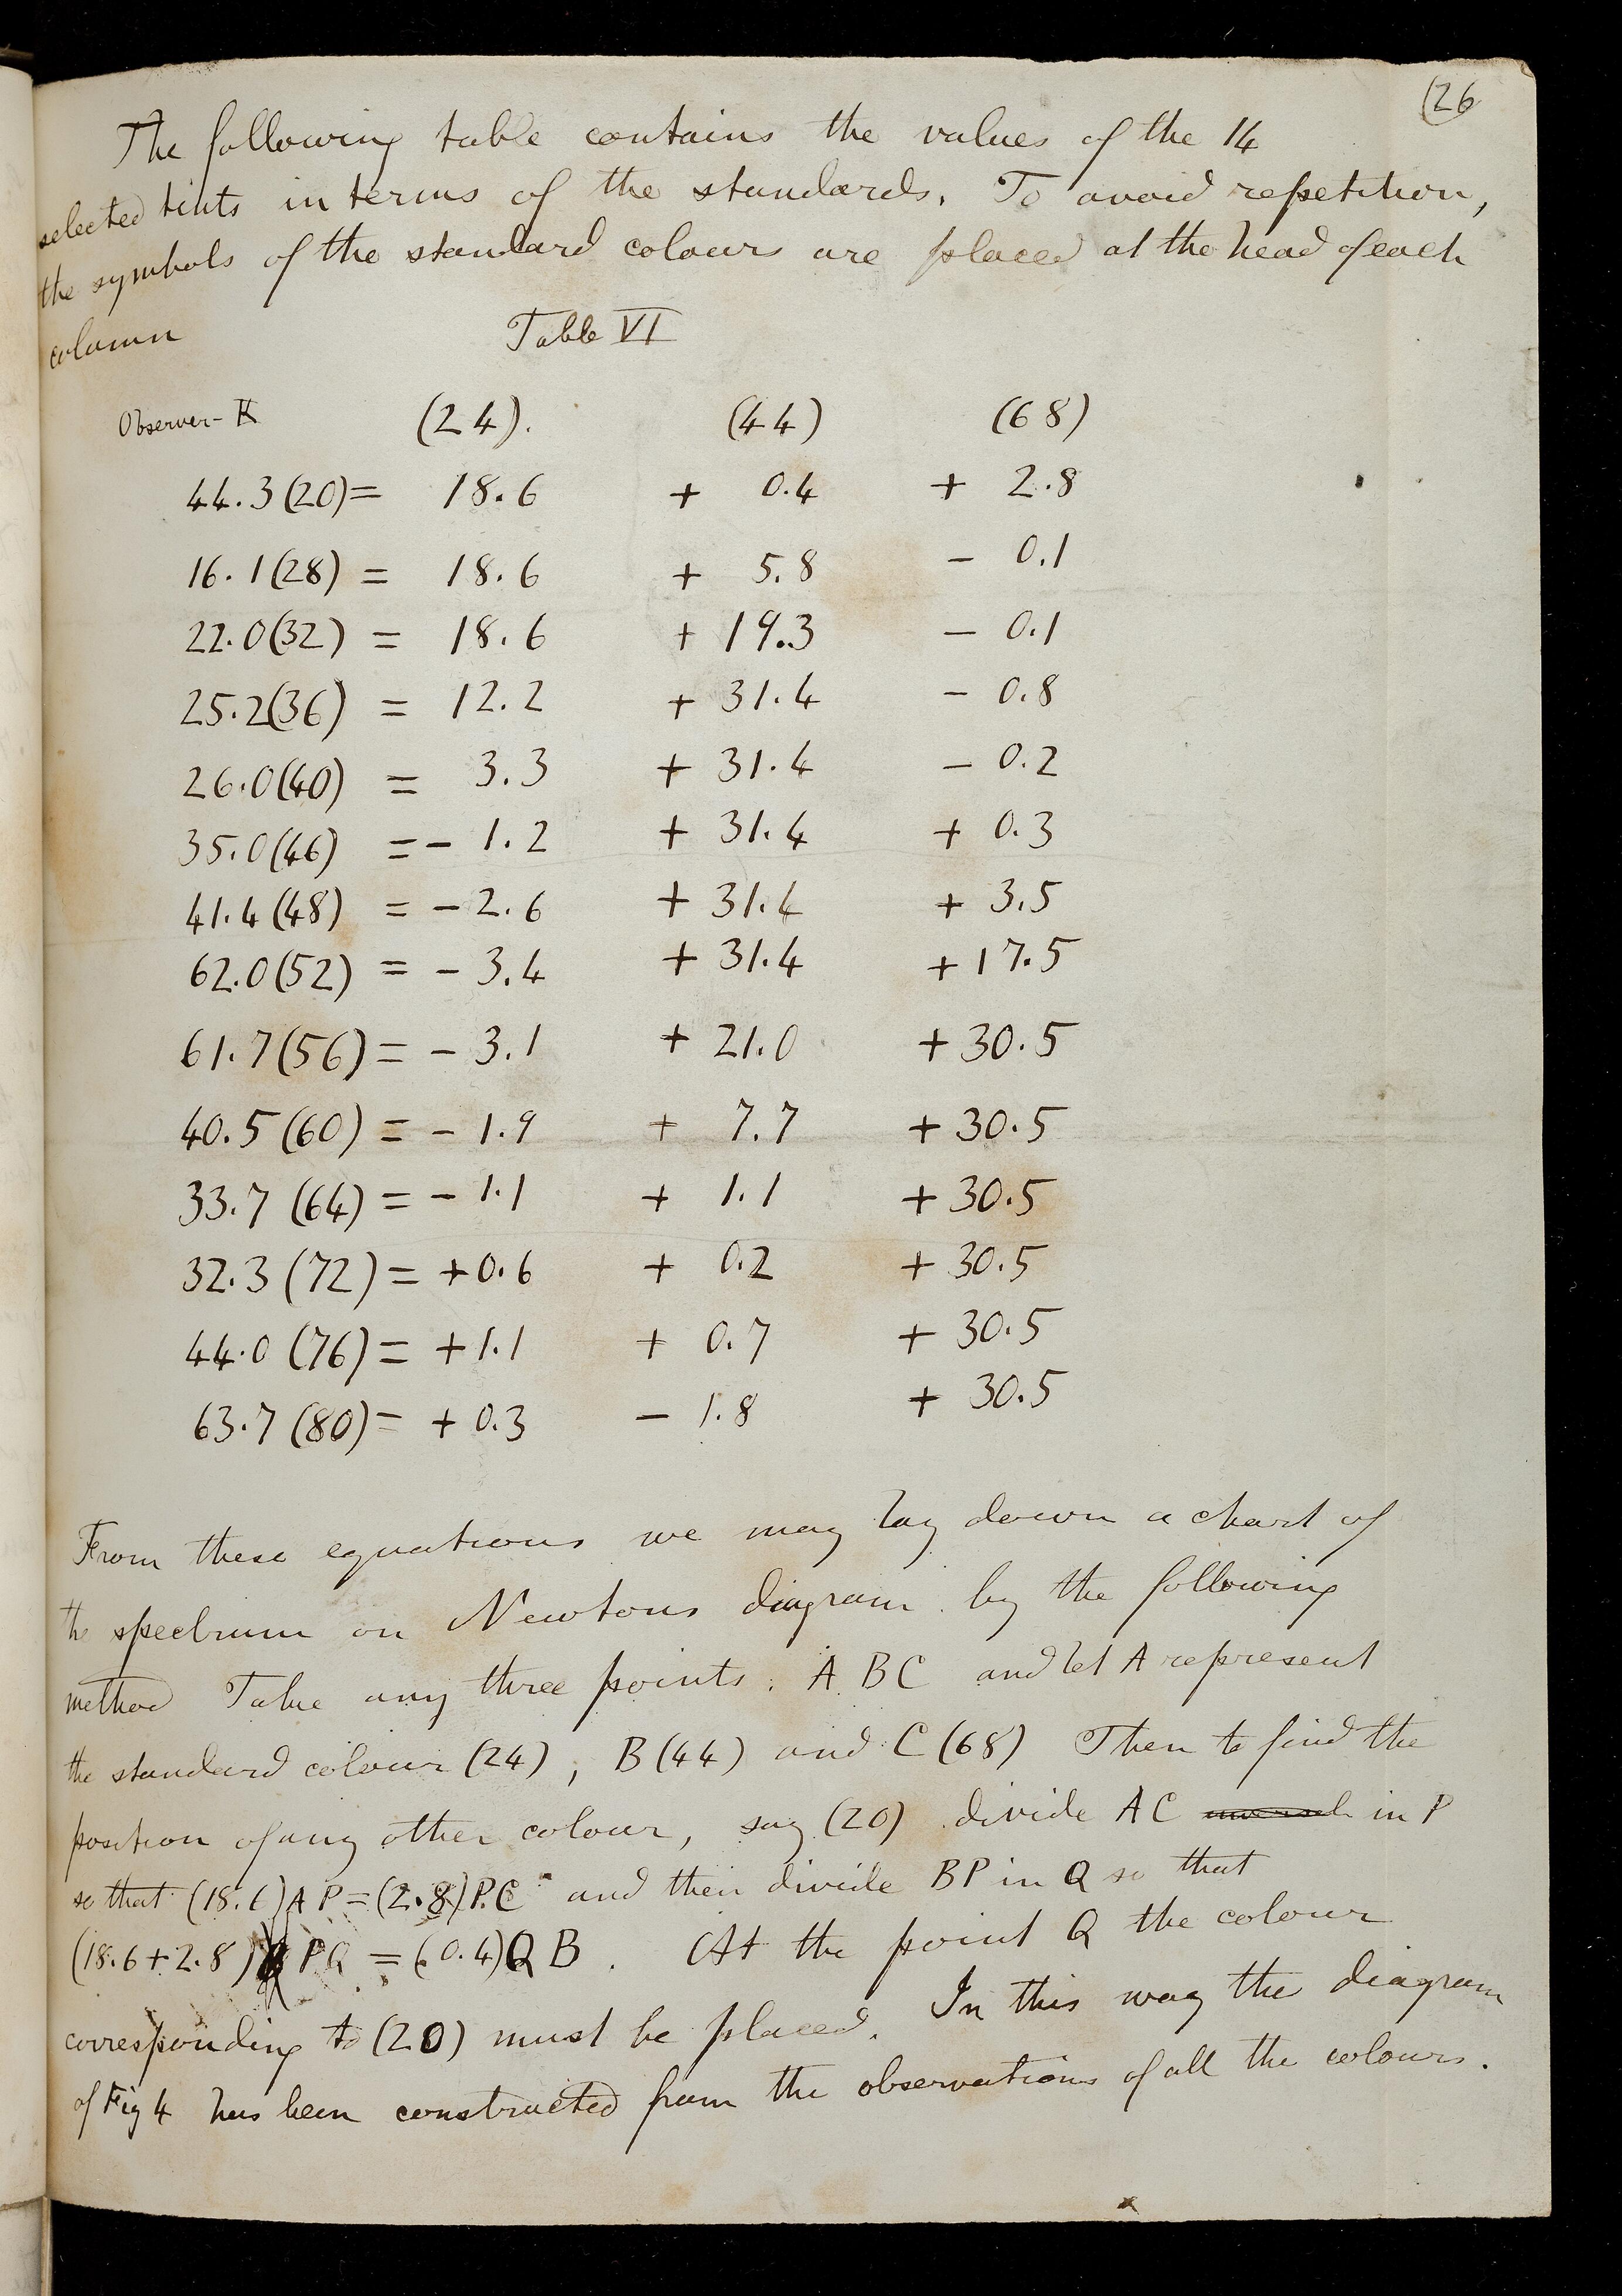 (26
The following table contains the values of the 14
selected tints in terms of the standards. To avoid repetition,
the symbols of the standard colours are placed at the head of each
column
Table VI
Observer - K (24). (44) (68)
44.3 (20) = 18.6 + 0.4 + 2.8
16.1 (28) = 18.6 + 5.8 - 0.1
22.0 (32) = 18.6 + 19.3 - 0.1
25.2 (36) = 12.2 + 31.4 - 0.8
26.0 (40) = 3.3 + 31.4 - 0.2
35.0 (46) = - 1.2 + 31.4 + 0.3
41.4 (48) = - 2.6 + 31.4 + 3.5
62.0 (52) = - 3.4 + 31.4 + 17.5
61.7 (56) = - 3.1 + 21.0 + 30.5
40.5 (60) = - 1.9 + 7.7 + 30.5
33.7 (64) = - 1.1 + 1.1 + 30.5
32.3 (72) = + 0.6 + 0.2 + 30.5
44.0 (76) = + 1.1 + 0.7 + 30.5
63.7 (80) = + 0.3 - 1.8 + 30.5
From these equations we may lay down a chart of
the spectrum on Newtons diagram by the following
method Take any three points. A B C and let A represent
the standard colour (24), B (44) and C (68) Then to find the
position of any other colour, say (20) divide AC in P
so that (18.6) AP = (2.8) PC and then divide BP in Q so that
(18.6 + 2.8) PQ = (0.4) QB. At the point Q the colour
corresponding to (20) must be placed. In this way the diagram
of Fig 4 has been constructed from the observations of all the colours.